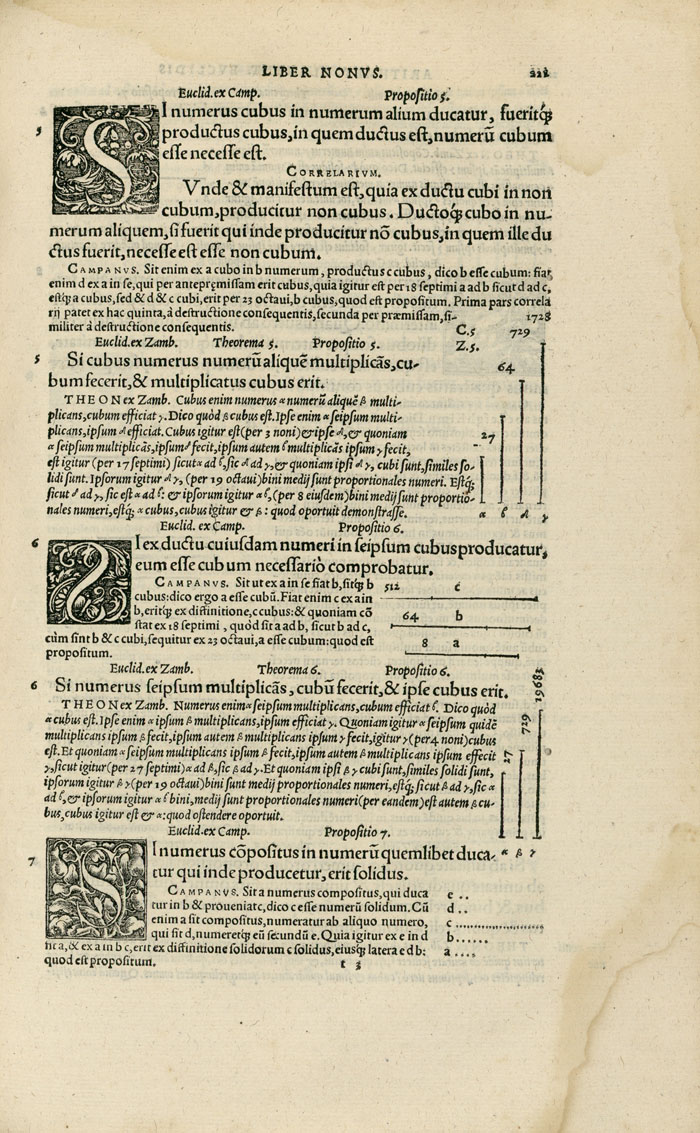 LIBER NONVS. 222
Euclid. ex Camp. Propositio 5.
5 SI numerus cubus in numerum alium ducatur, fueritq́ꝫ
productus cubus, in quem ductus est, numerū cubum
esse necesse est.
CORRELARIVM.
Vnde & manifestum est, quia ex ductu cubi in non
cubum, producitur non cubus. Ductoq́ꝫ cubo in nu-
merum aliquem, si fuerit qui inde producitur nō cubus, in quem ille du
ctus fuerit, necesse est esse non cubum.
CAMPANVS. Sit enim ex a cubo in b numerum, productus c cubus, dico b esse cubum: fiat
enim d ex a in se, qui per antepręmissam erit cubus, quia igitur est per 18 septimi a ad b sicut d ad c,
estq́ꝫ a cubus, sed & d & c cubi, erit per 23 octaui, b cubus, quod est propositum. Prima pars correla
rij patet ex hac quinta, à destructione consequentis, secunda per præmissam, si-
militer à destructione consequentis.
C.5. 729 1728
Euclid. ex Zamb. Theorema 5. Propositio 5. Z.5.
5 Si cubus numerus numerū aliquē multiplicãs, cu-
bum fecerit, & multiplicatus cubus erit.
64
THEON ex Zamb. Cubus enim numerus α numerū aliquē β multi-
plicans, cubum efficiat γ. Dico quòd β cubus est. Ipse enim α seipsum multi-
plicans, ipsum δ efficiat. Cubus igitur est (per 3 noni) & ipse δ, & quoniam
27
α seipsum multiplicãs, ipsum δ fecit, ipsum autem β multiplicãs ipsum γ fecit,
est igitur (per 17 septimi) sicut α ad β, sic δ ad γ, & quoniam ipsi δ γ, cubi sunt, similes so-
lidi sunt. Ipsorum igitur δ γ, (per 19 octaui) bini medij sunt proportionales numeri. Estq́ꝫ
sicut δ ad γ, sic est α ad β: & ipsorum igitur α β, (per 8 eiusdem) bini medij sunt proportio-
nales numeri, estq́ꝫ α cubus, cubus igitur & β: quod oportuit demonstrasse.
α β δ γ
Euclid. ex Camp. Propositio 6.
6 SI ex ductu cuiusdam numeri in seipsum cubus producatur,
eum esse cubum necessariò comprobatur.
CAMPANVS. Sit ut ex a in se fiat b, sitq́ꝫ b
cubus: dico ergo a esse cubū. Fiat enim c ex a in
b, eritq́ꝫ ex diffinitione, c cubus: & quoniam cō
stat ex 18 septimi, quòd sit a ad b, sicut b ad c,
cùm sint b & c cubi, sequitur ex 23 octaui, a esse cubum: quod est
propositum.
512 c
64 b
8 a
Euclid. ex Zamb. Theorema 6. Propositio 6.
6 Si numerus seipsum multiplicãs, cubū fecerit, & ipse cubus erit.
THEON ex Zamb. Numerus enim α seipsum multiplicans, cubum efficiat β. Dico quòd
α cubus est. Ipse enim α ipsum β multiplicans, ipsum efficiat γ. Quoniam igitur α seipsum quidē
multiplicans ipsum β fecit, ipsum autem β multiplicans ipsum γ fecit, igitur γ (per 4 noni) cubus
est. Et quoniam α seipsum multiplicans ipsum β fecit, ipsum autem β multiplicans ipsum effecit
γ, sicut igitur (per 27 septimi) α ad β, sic β ad γ. Et quoniam ipsi β γ cubi sunt, similes solidi sunt,
ipsorum igitur β γ (per 19 octaui) bini sunt medij proportionales numeri, estq́ꝫ sicut β ad γ, sic α
ad β, & ipsorum igitur α β bini, medij sunt proportionales numeri (per eandem) est autem β cu-
bus, cubus igitur est & α: quod ostendere oportuit.
27 729 19683
α β γ
Euclid. ex Camp. Propositio 7.
7 SI numerus cōpositus in numerū quemlibet duca-
tur qui inde producetur, erit solidus.
CAMPANVS. Sit a numerus compositus, qui duca
tur in b & proueniat c, dico c esse numerū solidum. Cū
enim a sit compositus, numeratur ab aliquo numero,
qui sit d, numeretq́ꝫ eū secundū e. Quia igitur ex e in d
fit a, & ex a in b c, erit ex diffinitione solidorum c solidus, eiusq́ꝫ latera e d b:
quod est propositum.
e ..
d ..
c ........................
b ......
a ....
t 3